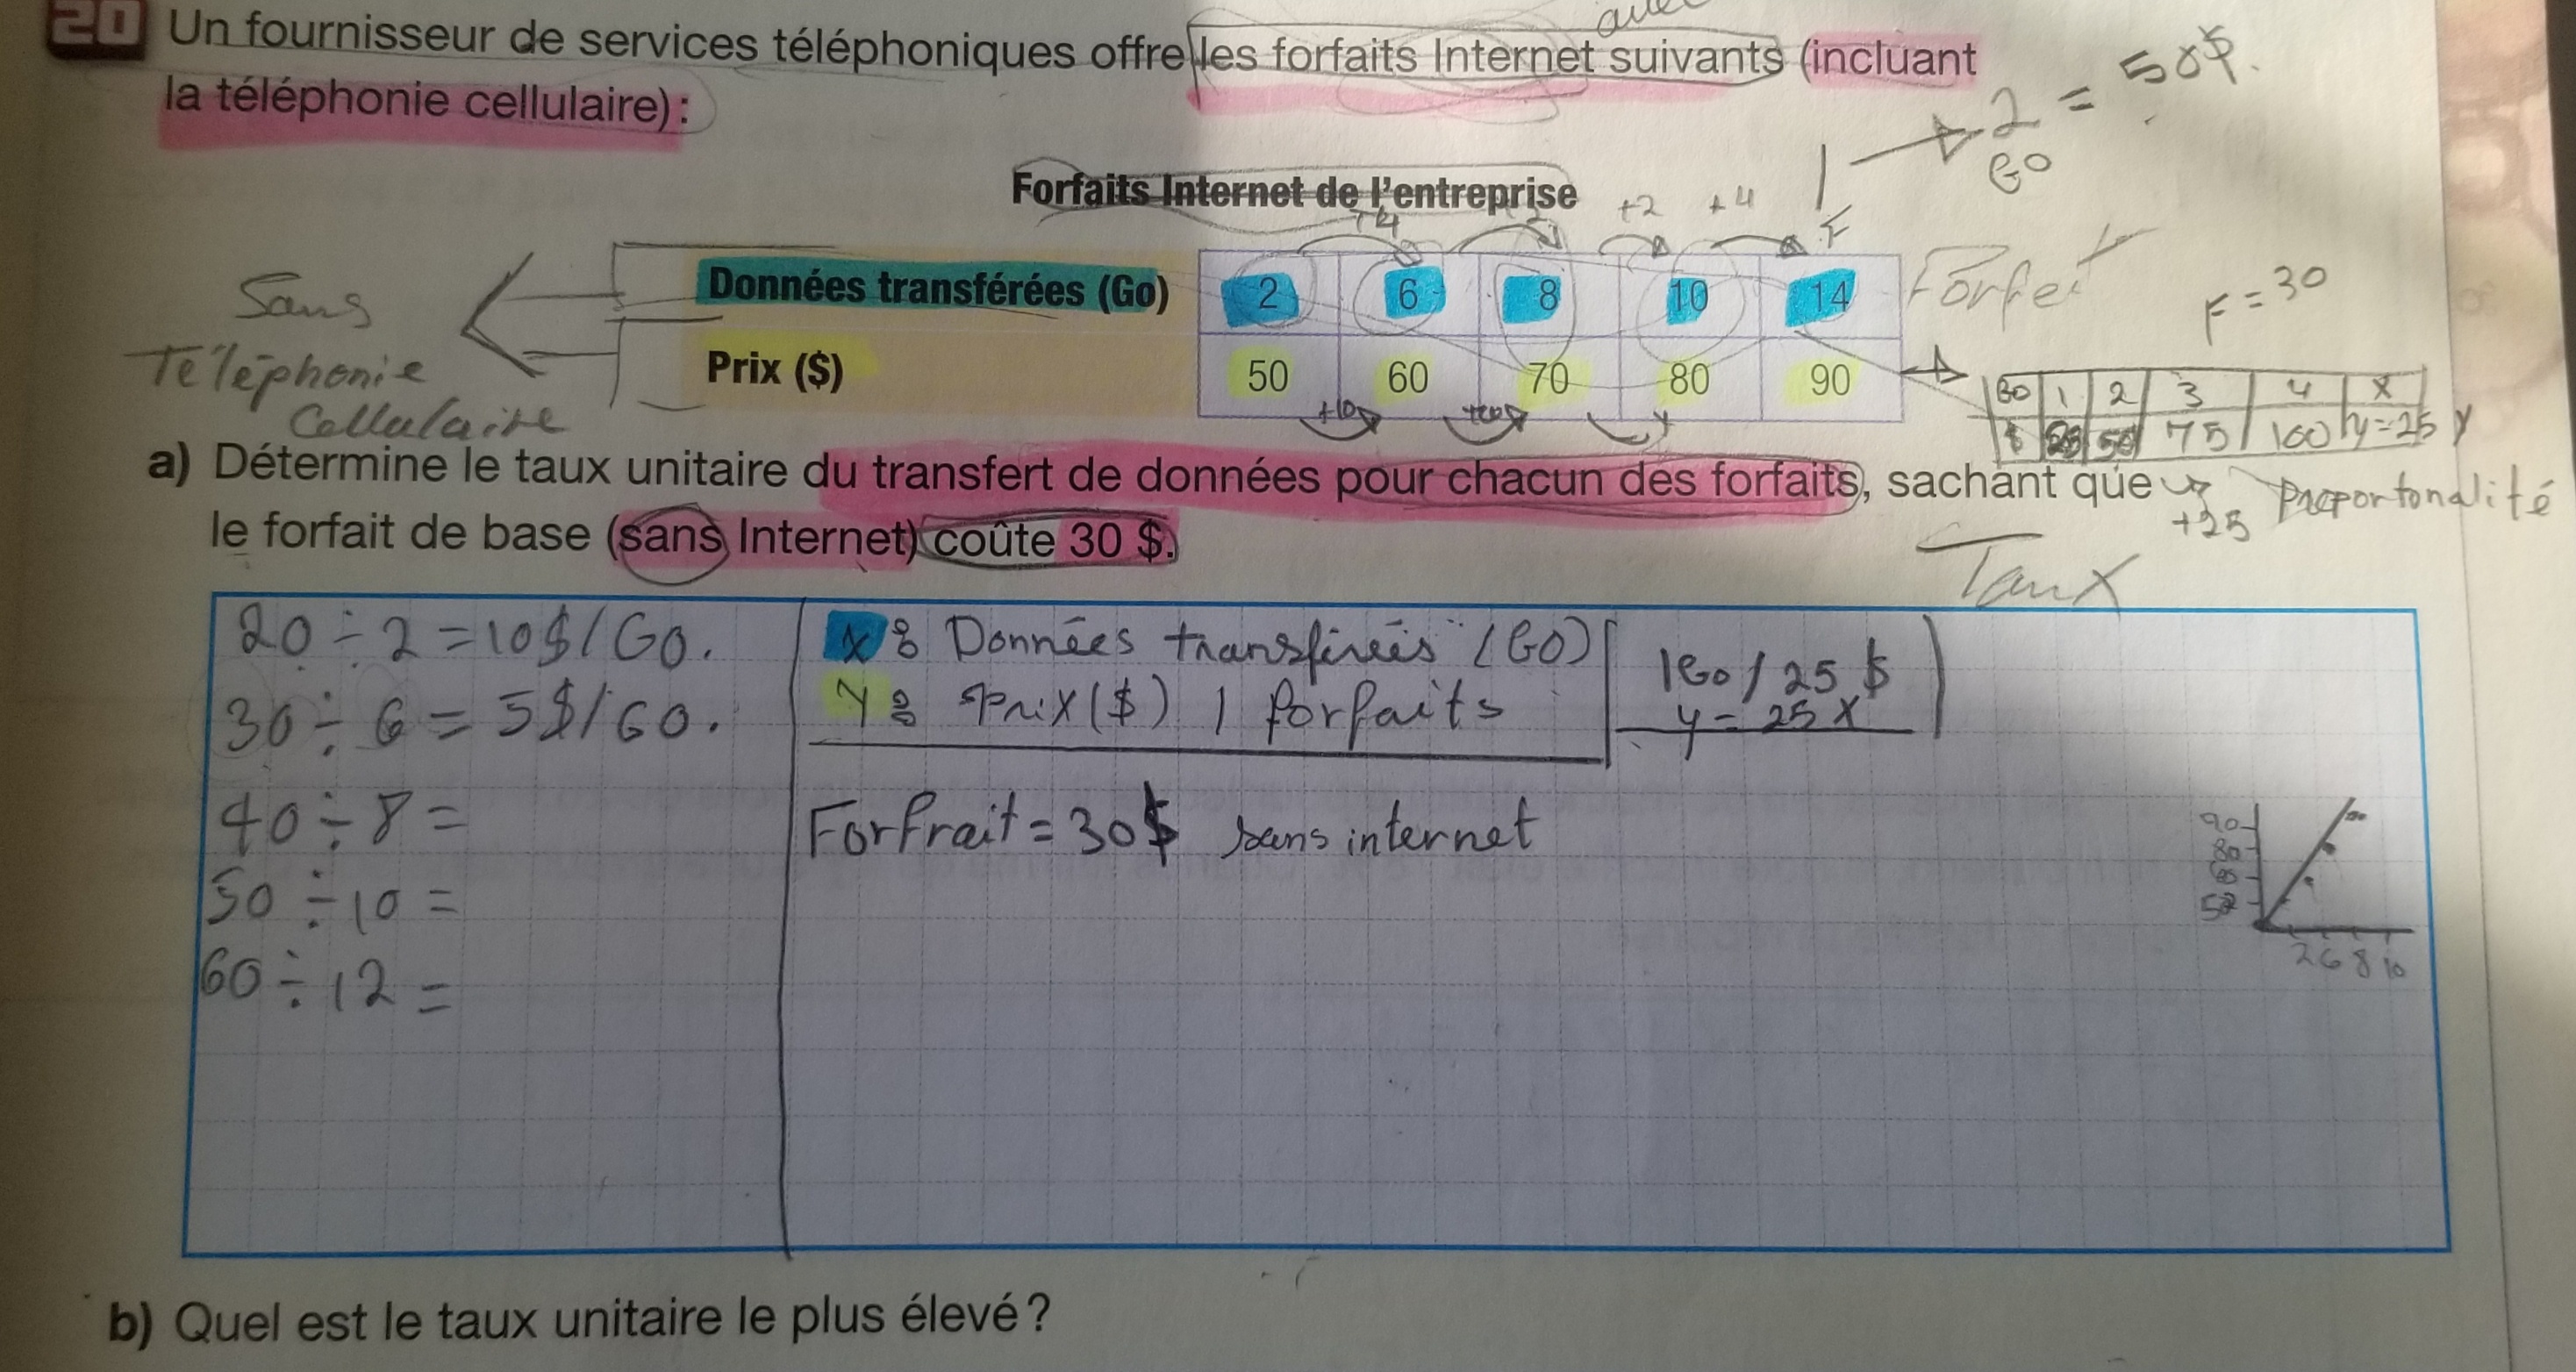 20 Un fournisseur de services téléphoniques offre les forfaits Internet suivants (incluant
la téléphonie cellulaire) :
1 F → 2 GO = 50$.
Forfaits Internet de l'entreprise
+4 +2 +4
Données transférées (Go) 2 6 8 10 14
Prix ($) 50 60 70 80 90
+10
Sans
Téléphonie
Cellulaire
Forfet
F = 30
GO 1 2 3 4 X
$ 25 50 75 100 y=25
a) Détermine le taux unitaire du transfert de données pour chacun des forfaits, sachant que
le forfait de base (sans Internet) coûte 30 $.
+25 Proportonalité
Taux
20 ÷ 2 = 10$/GO.
30 ÷ 6 = 5$/GO.
40 ÷ 8 =
50 ÷ 10 =
60 ÷ 12 =
X : Données transfireés (GO)
Y : Prix ($) 1 forfaits
1Go / 25 $
y = 25 X
Forfrait = 30$ sans internet
90
80
60
50
2 6 8 10
b) Quel est le taux unitaire le plus élevé ?